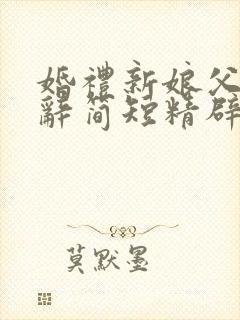 婚禮新娘父
辭簡短精辟
莫默墨